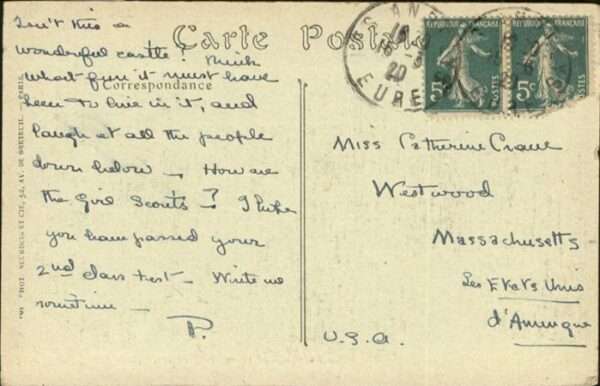 Isn't this a
wonderful castle! Think
what fun it must have
been to live in it, and
laugh at all the people
down below — How are
the Girl Scouts? I hope
you have passed your
2nd class test — Write me
sometime —
P.
Carte Postale
Correspondance
ANDE
EURE
20
RÉPUBLIQUE FRANÇAISE
5c
POSTES
RÉPUBLIQUE FRANÇAISE
5c
POSTES
Miss Catherine Crane
Westwood
Massachusetts
Les Etats Unis
d'Amerique
U.S.A.
PHOT. NEURDEIN ET CIE, 52, AV. DE BRETEUIL. PARIS.